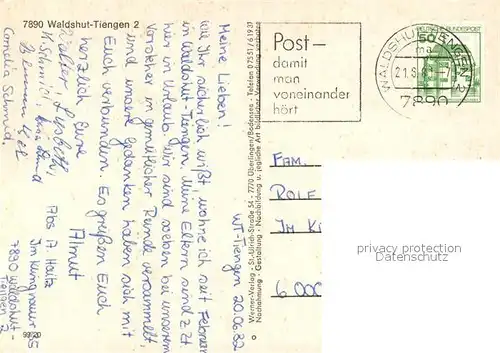 7890 Waldshut-Tiengen 2
WT-Tiengen 20.06.82
Meine Lieben!
Wie Ihr sicherlich wißt, wohne ich seit Februar
in Waldshut-Tiengen. Meine Eltern sind z. Zt.
hier in Urlaub. Wir sind soeben bei unserem
Vorsteher in gemütlicher Runde versammelt,
und unsere Gedanken haben sich mit
Euch verbunden. Es grüßen Euch
herzlich Eure
Almut
Walter, Lisbeth,
K. Schmid,
Cornelia Schmid.
Abs. A. Haitz
Im
7890 Waldshut-
Tiengen 2
99/20
Werner-Verlag - St.-Ulrich-Straße 54 - 7770 Überlingen/Bodensee - Telefon 07551/61937
Nachahmung - Gestaltung - Nachbildung u. jegliche Art bildlicher Verwendung
Post-
damit
man
voneinander
hört
WALDSHUT-TIENGEN 2
50
ma
21.6.82-
7890
DEUTSCHE BUNDESPOST
FAM.
ROLF
IM
6000
privacy protection
Datenschutz